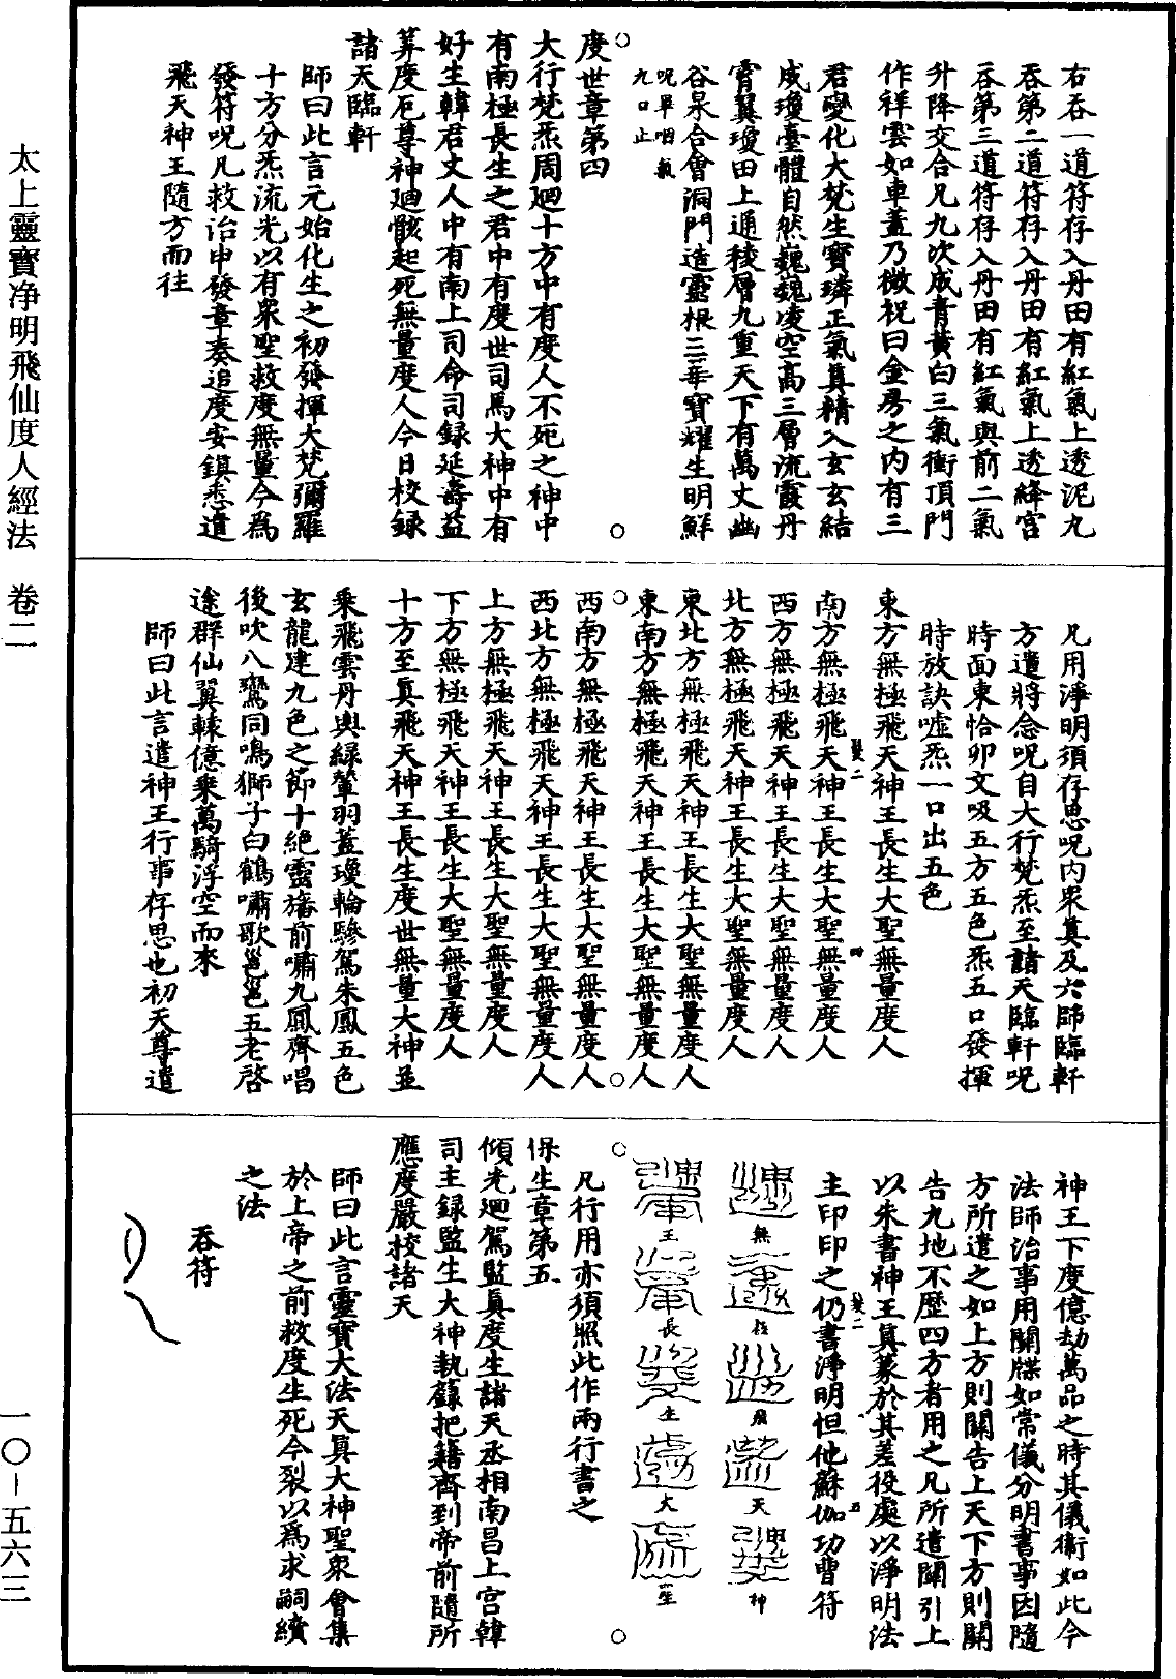 右吞一道符存入丹田有紅氣上透泥九
吞第二道符存入丹田有紅氣上透絳宮
吞第三道符存入丹田有紅氣與前二氣
升降交合凡九次成青黃白三氣衝頂門
作祥雲如車蓋乃微祝曰金房之內有三
君變化大梵生寶璘正氣真精入玄玄結
成瓊臺體自然巍巍凌空高三層流霞丹
霄翼瓊田上通稜層九重天下有萬丈幽
谷泉合會洞門造靈根三華寶耀生明鮮
呪畢咽氣
九口止
度世章第四
大行梵炁周廻十方中有度人不死之神中
有南極長生之君中有度世司馬大神中有
好生韓君丈人中有南上司命司録延壽益
筭度厄尊神廻骸起死無量度人今日校録
諸天臨軒
師曰此言元始化生之初發揮大梵彌羅
十方分炁流光以有衆聖救度無量今為
發符呪凡救治申發章奏追度安鎮悉遣
飛天神王隨方而往
凡用淨明須存思呪內衆真及六師臨軒
方遣將念呪自大行梵炁至諸天臨軒呪
時面東恰卯文吸五方五色炁五口發揮
時放訣噓炁一口出五色
東方無極飛天神王長生大聖無量度人
南方無極飛天神王長生大聖無量度人
西方無極飛天神王長生大聖無量度人
北方無極飛天神王長生大聖無量度人
東北方無極飛天神王長生大聖無量度人
東南方無極飛天神王長生大聖無量度人
西南方無極飛天神王長生大聖無量度人
西北方無極飛天神王長生大聖無量度人
上方無極飛天神王長生大聖無量度人
下方無極飛天神王長生大聖無量度人
十方至真飛天神王長生度世無量大神並
乘飛雲丹輿緑輦羽蓋瓊輪驂駕朱鳳五色
玄龍建九色之節十絶靈旛前嘯九鳳齊唱
後吹八鸞同鳴獅子白鶴嘯歌邕邕五老啓
途群仙翼轅億乘萬騎浮空而來
師曰此言遣神王行事存思也初天尊遣
神王下度億劫萬品之時其儀衛如此今
法師治事用關牒如常儀分明書事因隨
方所遣之如上方則關告上天下方則關
告九地不歷四方者用之凡所遣關引上
以朱書神王真篆於其差役處以淨明法
主印印之仍書淨明怛他蘇伽功曹符
無 極 飛 天 神
王 長 生 大 聖
凡行用亦須照此作兩行書之
保生章第五
傾光廻駕監真度生諸天丞相南昌上宮韓
司主録監生大神執籙把籍齊到帝前隨所
應度嚴校諸天
師曰此言靈寶大法天真大神聖衆會集
於上帝之前救度生死今裂以為求嗣續
之法
吞符
太上靈寶净明飛仙度人經法 卷二
一〇-五六三